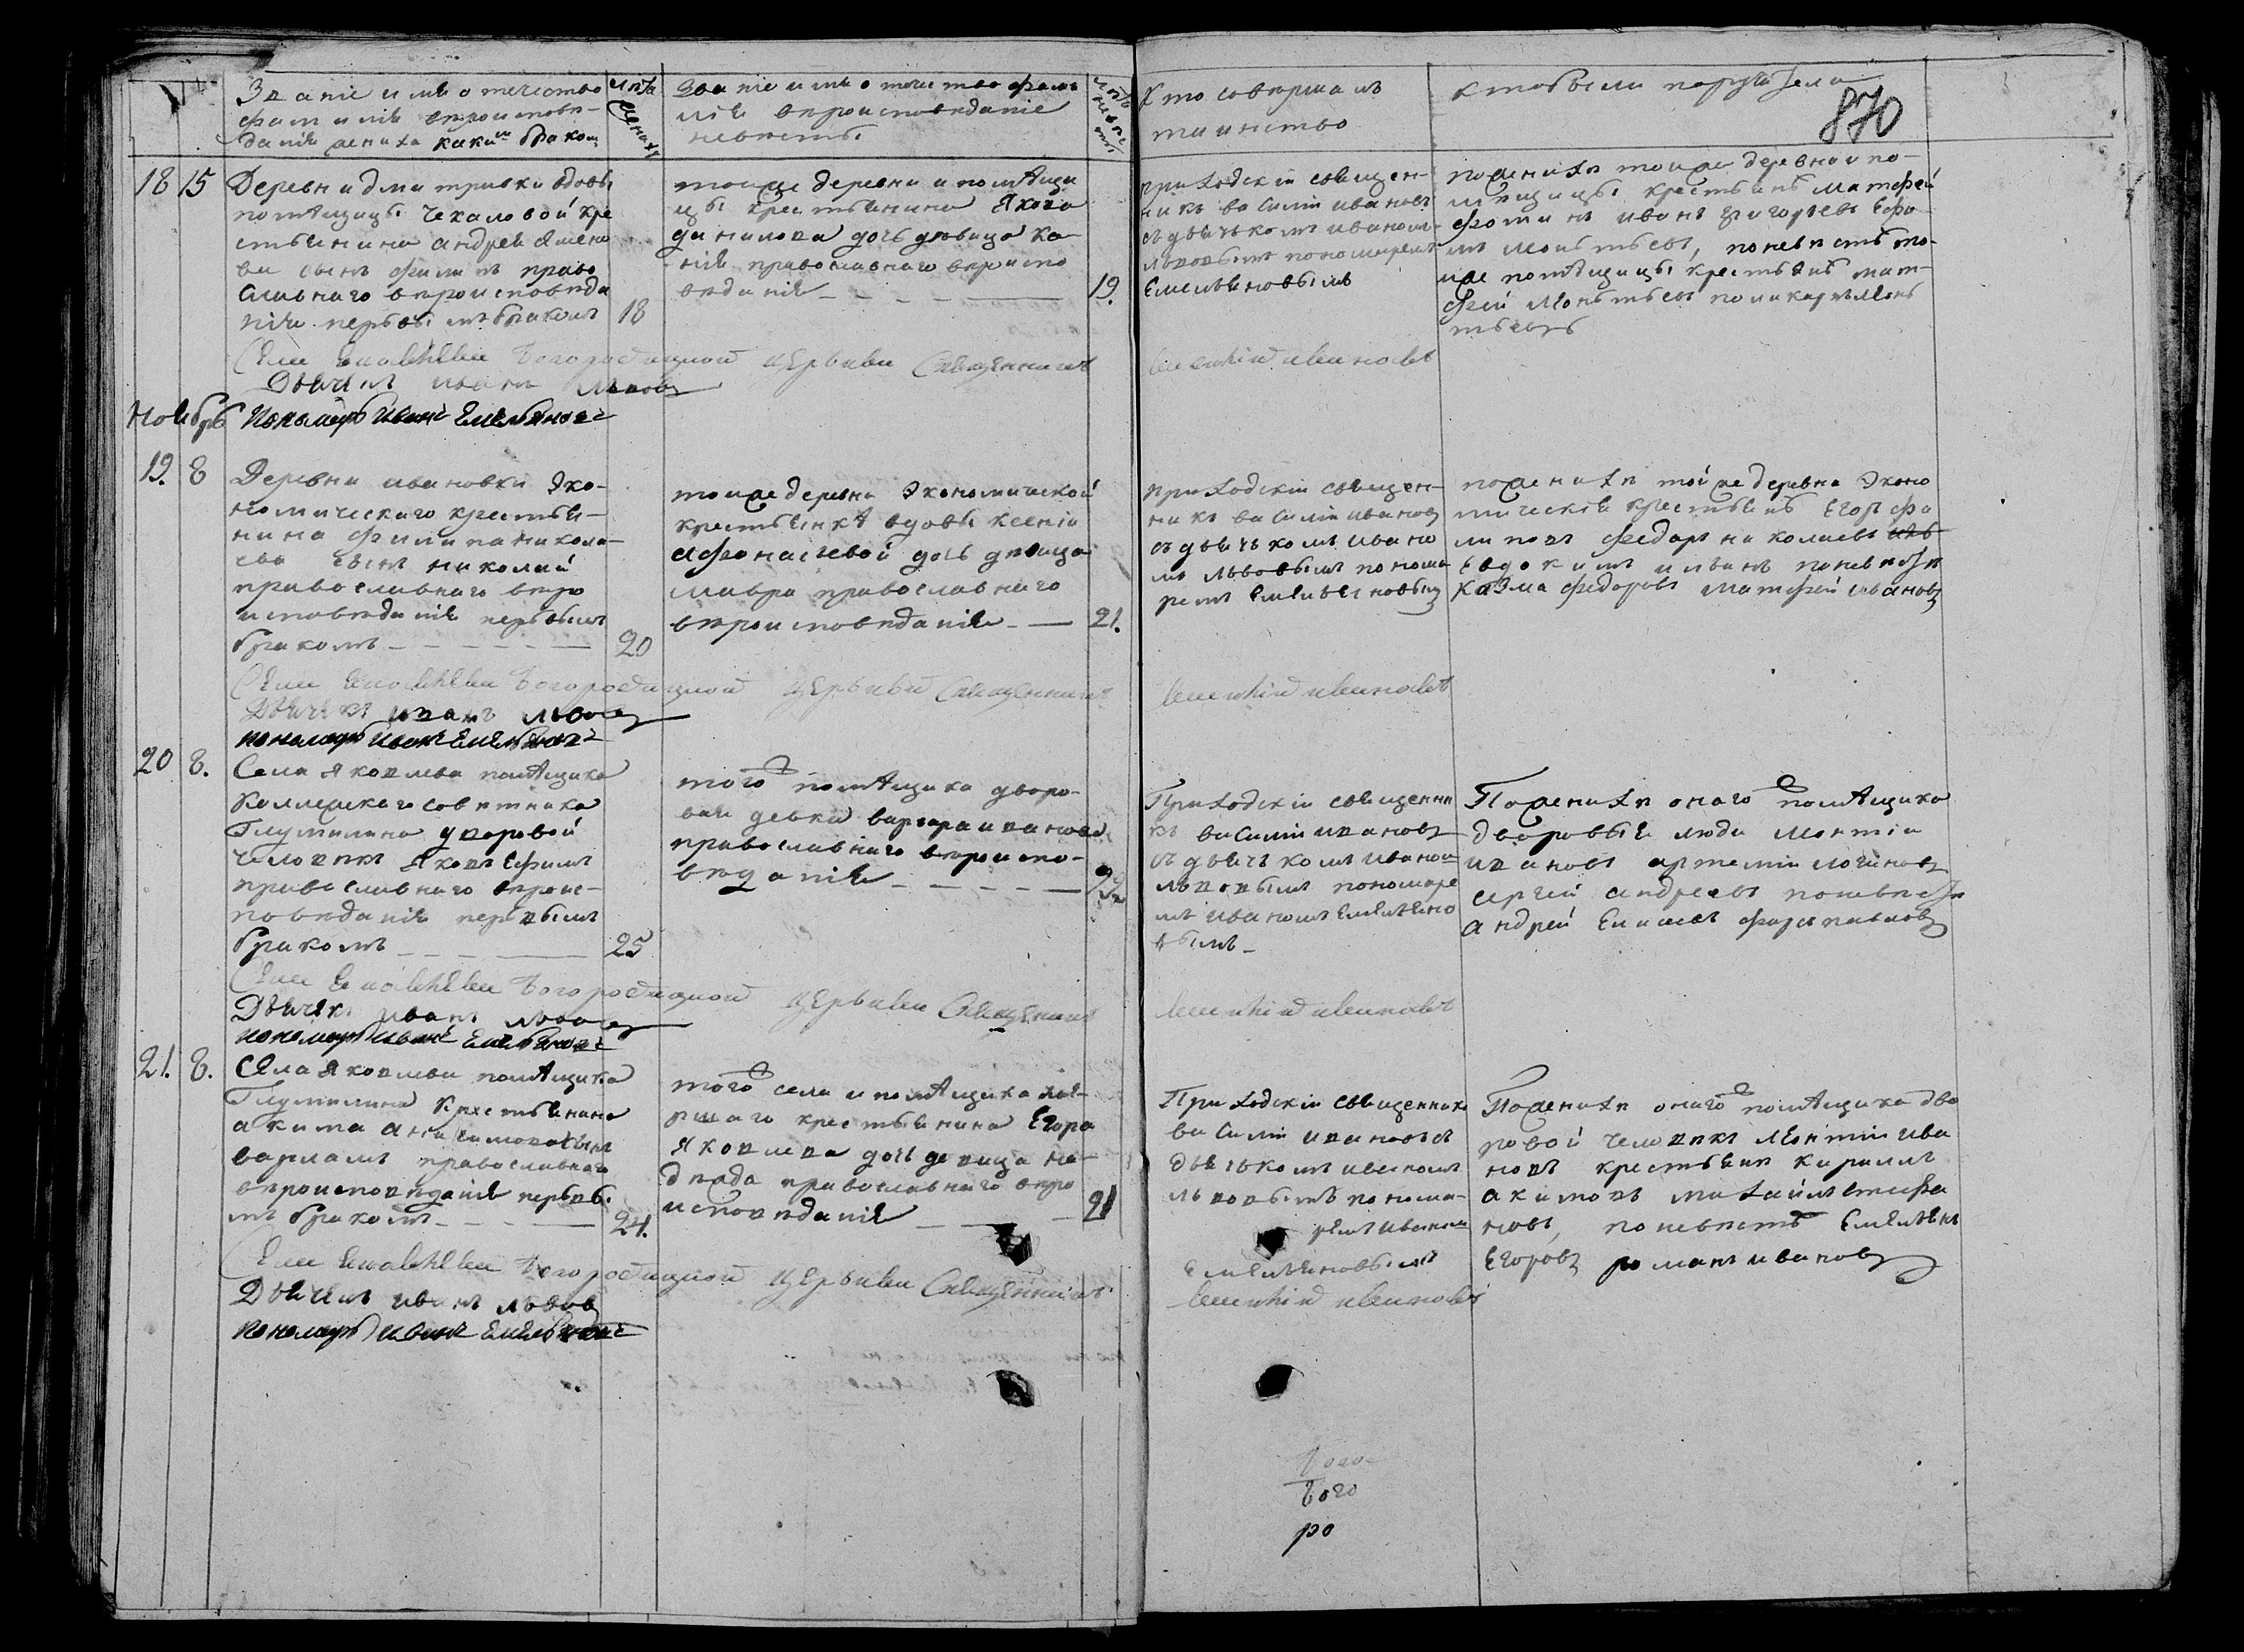 Званіе имя отечество
фамилія вѣроисповѣ-
данія жениха какимъ бракомъ
лѣта жениха
Званіе имя отечество фами
лія вѣроисповеданіе
невесты
лѣта невесты
Кто совершалъ
таинство
кто были поручатели
870
18 15
Деревни дмитривки вдовы
помѣщицы Чекаловой кре
стьянина андрея
сынъ филипъ право
славнаго вѣроисповѣда
нія первымъ бракомъ 18
тоиже деревни и помѣщи
цы крестьянина Якова
данилова дочь девица
православнаго вѣроиспо
вѣданія 19.
приходскій священ-
никъ василій ивановъ
съ дьячькомъ иваномъ
львовымъ пономаремъ
Емельяновымъ
поженихѣ тоиже деревни и по-
мѣщицы крестьянъ матфей
иванъ григорьевъ
по невѣстѣ то-
иже помѣщицы крестьянъ мат-
фей
Села Богородицкой церькви Священникъ
василій ивановъ
Дьячекъ иванъ львовъ
Ноябрь
Пономарь Иванъ Емельяновъ
19. 8
Деревни ивановки эко-
номическаго крестья-
нина филипа никола-
ева сынъ николай
православнаго вѣро
исповѣданія первымъ
бракомъ 20
тоиже деревни экономической
крестьянкѣ вдовы ксеніи
афонасьевой дочь девица
мавра православнаго
вѣроисповѣданія 21.
приходскій священ-
никъ василій ивановъ
съ дьячькомъ ивано
мъ львовымъ понома
ремъ Емельяновымъ
поженихѣ тойже деревни эконо
мическія крестьянъ Егоръ фи
липовъ федоръ николаевъ
Евдокимъ поневѣстѣ
козма федоровъ матфей ивановъ
Богородицкой церькви Священникъ
василій ивановъ
Дьячекъ иванъ львовъ
пономарь иванъ Емельяновъ
20 8.
Села Яковлева помѣщика
Коллежскаго советника
Глумилина дворовой
человѣкъ Яковъ Ефимъ
православнаго вѣроис-
поведанія первымъ
бракомъ 25
того помѣщика дворо-
вая девка варвара иванова
православнаго вѣроиспо-
веданія
Приходскій священни
къ василій ивановъ
съ дьячькомъ иваномъ
львовымъ пономаре
мъ иваномъ Емельяно
вымъ
Поженихѣ онаго помѣщика
дворовыя люди леонтій
ивановъ артемій логиновъ
сергѣй андреевъ поневѣстѣ
андрей
Богородицкой церькви Священникъ
василій ивановъ
Дьячекъ иванъ львовъ
пономарь иванъ Емельяновъ
21. 8.
Села Яковлева помѣщика
Глумилина крестьянина
акима сынъ
варламъ православнаго
вѣроисповѣданія первы
мъ бракомъ 24.
того села и помѣщика
крестьянина Егора
Яковлева дочь девица на-
дежда православнаго вѣро
исповѣданія 21
Приходскій священникъ
василій ивановъ съ
дьячькомъ иваномъ
львовымъ понома-
ремъ иваномъ
Емельяновымъ
Поженихѣ онаго помѣщика дво
ровой человѣкъ леонтій ива
новъ крестьянъ кирилъ
акимовъ михайлъ стефа
новъ, поневѣстѣ Емельянъ
Егоровъ романъ ивановъ
Богородицкой церькви Священникъ
василій ивановъ
Дьячекъ иванъ львовъ
пономарь иванъ Емельяновъ
Бого
ро